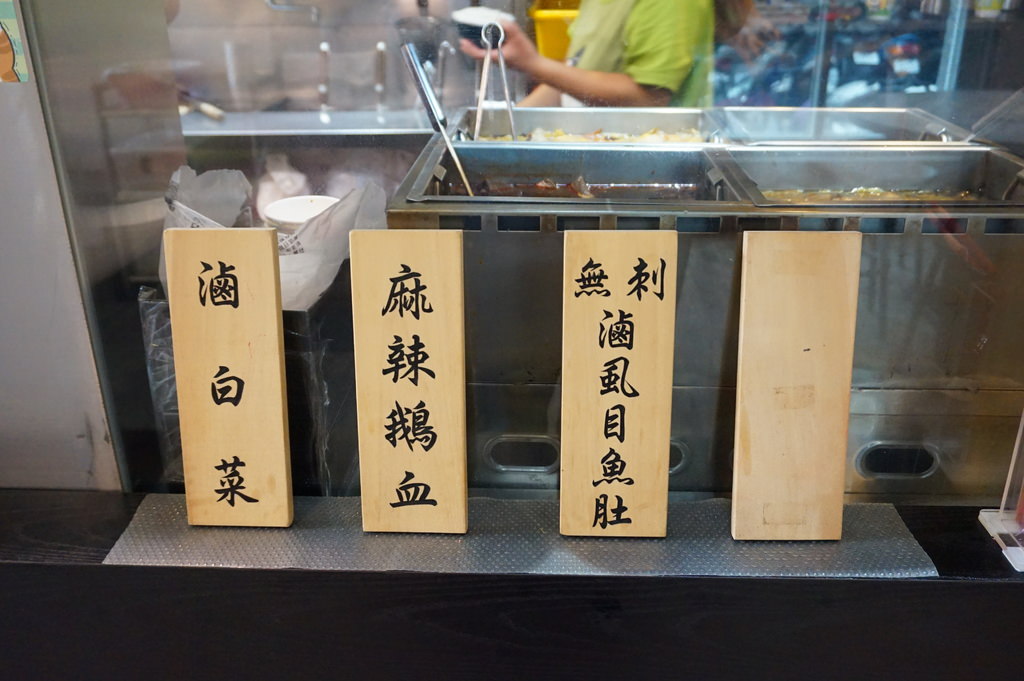 滷白菜
麻辣鵝血
無刺
滷虱目魚肚